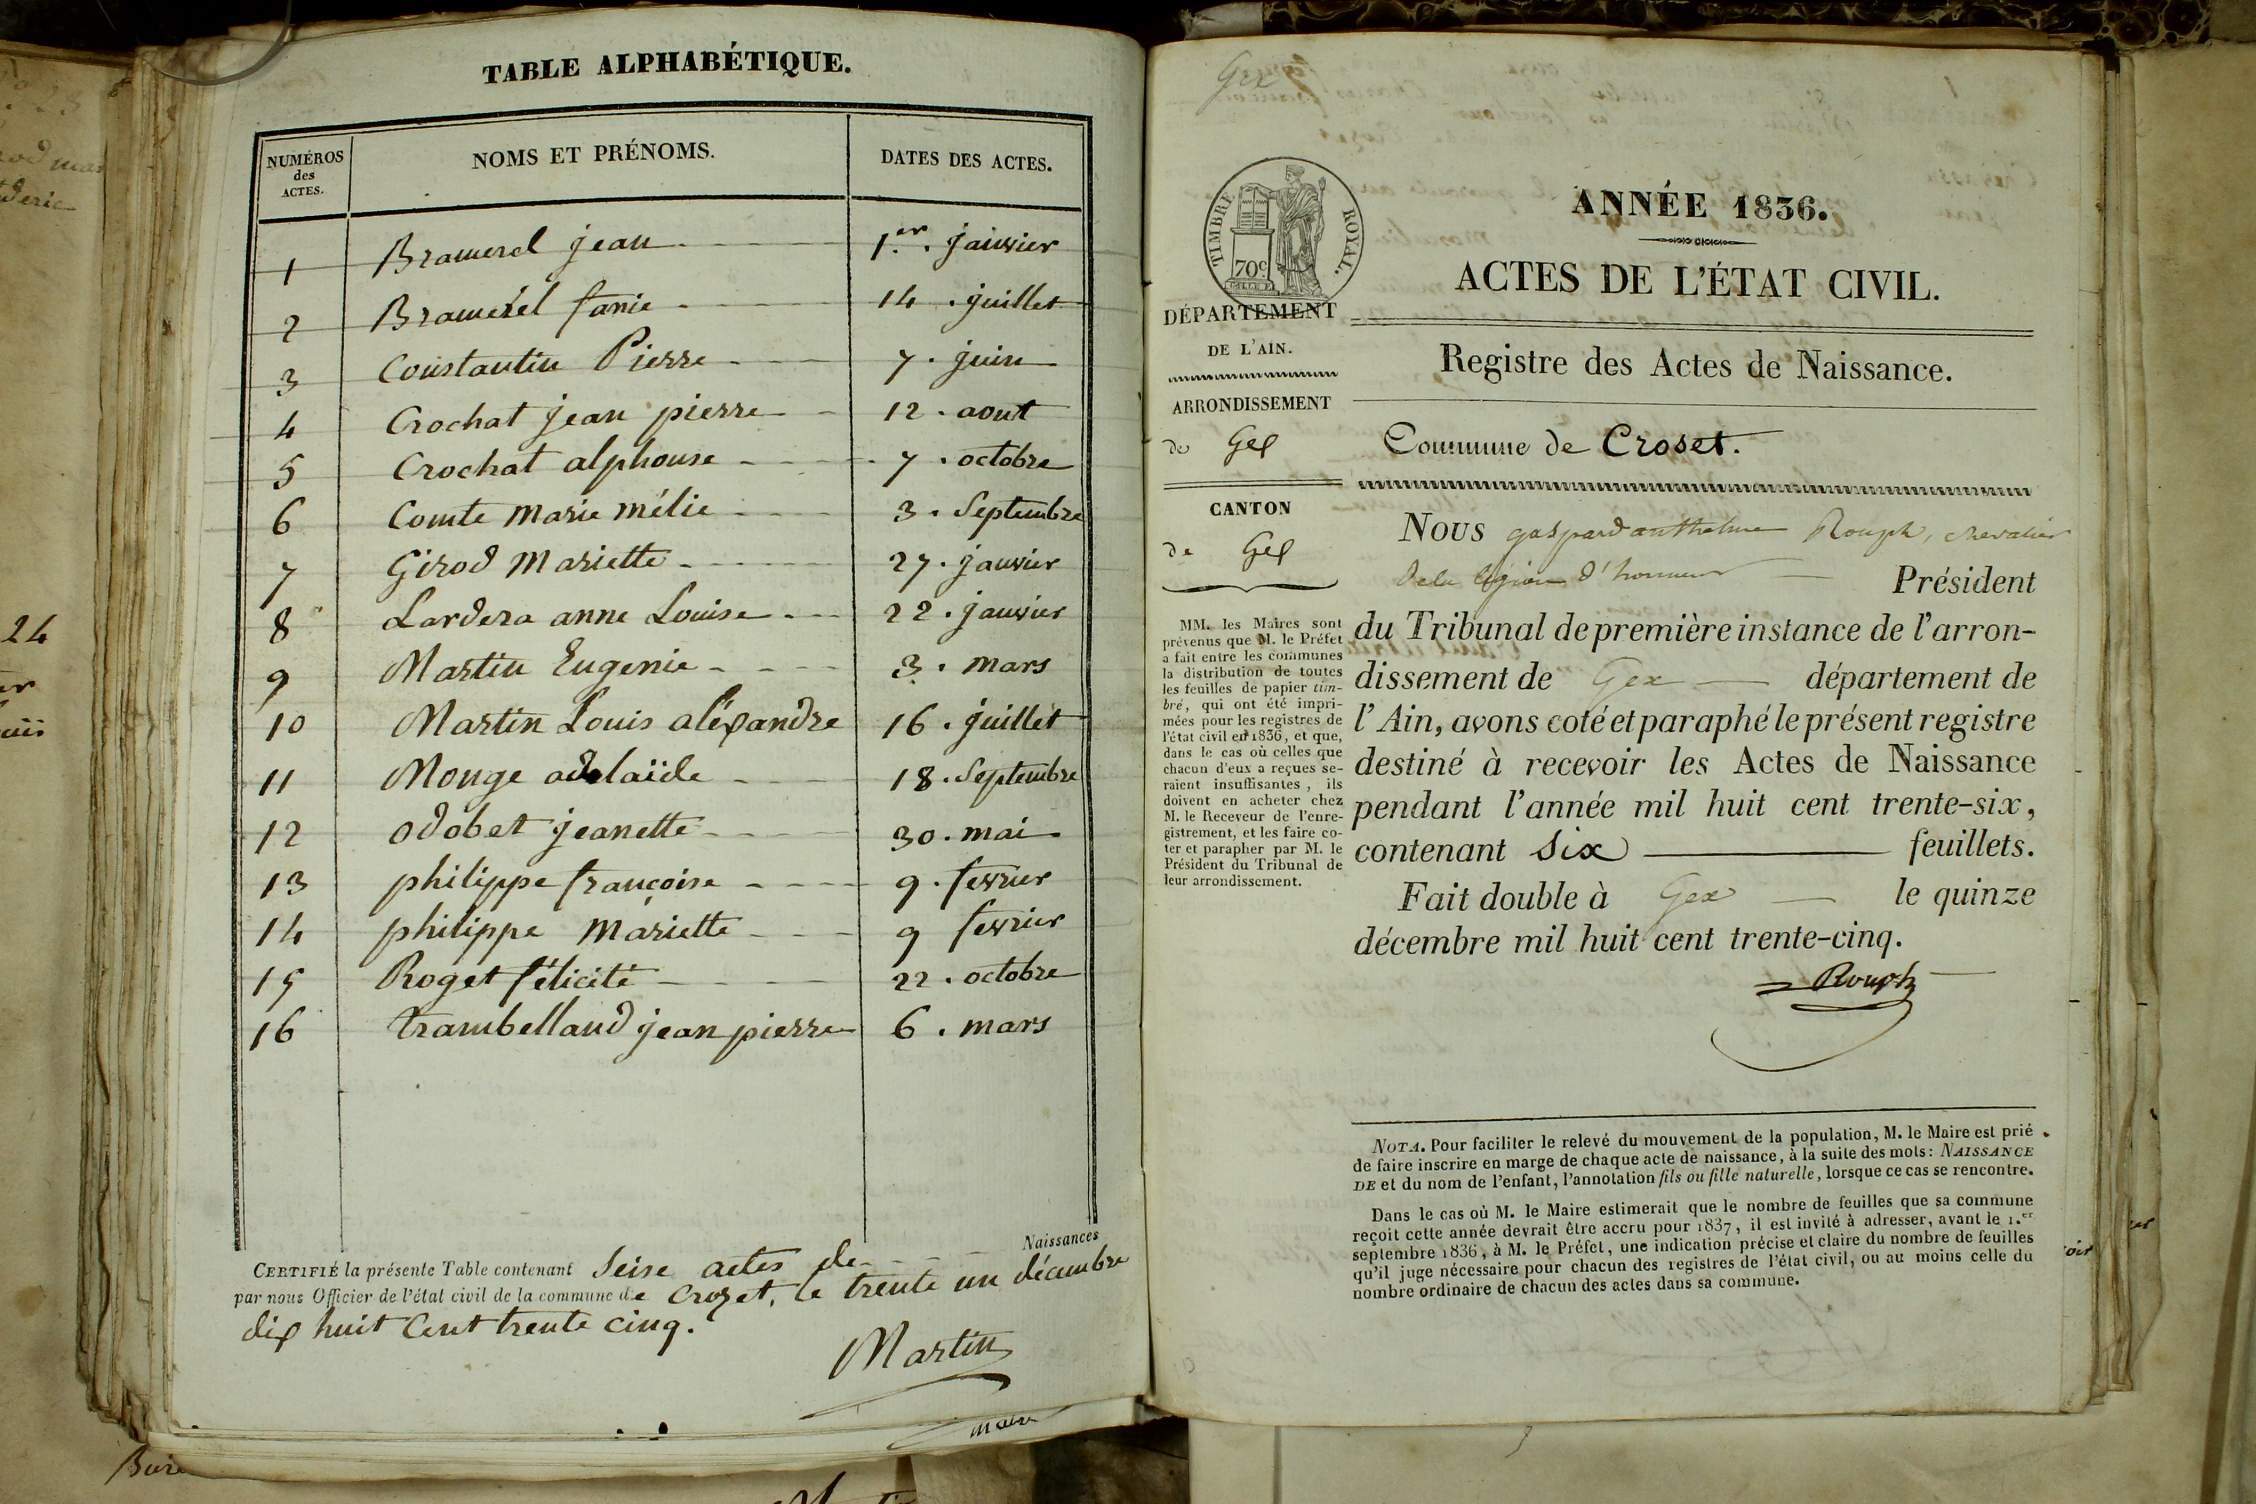 TABLE ALPHABÉTIQUE.
NUMÉROS des ACTES. NOMS ET PRÉNOMS. DATES DES ACTES.
1 Bramerel jean 1.er janvier
2 Bramerel fanie 14. juillet
3 Constantin Pierre 7. juin
4 Crochat jean pierre 12. aout
5 Crochat alphonse 7. octobre
6 Comte Marie mélie 3. Septembre
7 Girod Mariette 27. janvier
8 Lardera anne Louise 22. janvier
9 Martin Eugenie 3. mars
10 Martin Louis aléxandre 16. juillet
11 Monge adelaïde 18. Septembre
12 odobet jeanette 30. mai
13 philippe françoise 9. fevrier
14 philippe Mariette 9 fevrier
15 Roget félicité 22. octobre
16 trambelland jean pierre 6. mars
CERTIFIÉ la présente Table contenant Seise actes de Naissances
par nous Officier de l'état civil de la commune de Crozet, le trente un décembre
dix huit Cent trente cinq.
Martin
maire
24
Gex
TIMBRE ROYAL.
70c
ANNÉE 1836.
ACTES DE L'ÉTAT CIVIL.
DÉPARTEMENT
DE L'AIN.
ARRONDISSEMENT
de Gex
CANTON
de Gex
MM. les Maires sont
prévenus que M. le Préfet
a fait entre les communes
la distribution de toutes
les feuilles de papier tim-
bré, qui ont été impri-
mées pour les registres de
l'état civil en 1836, et que,
dans le cas où celles que
chacun d'eux a reçues se-
raient insuffisantes, ils
doivent en acheter chez
M. le Receveur de l'enre-
gistrement, et les faire co-
ter et parapher par M. le
Président du Tribunal de
leur arrondissement.
Registre des Actes de Naissance.
Commune de Croset.
NOUS gaspard anthelme Rouph, chevalier
de la légion d'honneur Président
du Tribunal de première instance de l'arron-
dissement de Gex département de
l'Ain, avons coté et paraphé le présent registre
destiné à recevoir les Actes de Naissance
pendant l'année mil huit cent trente-six,
contenant Six feuillets.
Fait double à Gex le quinze
décembre mil huit cent trente-cinq.
Rouph
NOTA. Pour faciliter le relevé du mouvement de la population, M. le Maire est prié
de faire inscrire en marge de chaque acte de naissance, à la suite des mots: NAISSANCE
DE et du nom de l'enfant, l'annotation fils ou fille naturelle, lorsque ce cas se rencontre.
Dans le cas où M. le Maire estimerait que le nombre de feuilles que sa commune
reçoit cette année devrait être accru pour 1837, il est invité à adresser, avant le 1.er
septembre 1836, à M. le Préfet, une indication précise et claire du nombre de feuilles
qu'il juge nécessaire pour chacun des registres de l'état civil, ou au moins celle du
nombre ordinaire de chacun des actes dans sa commune.